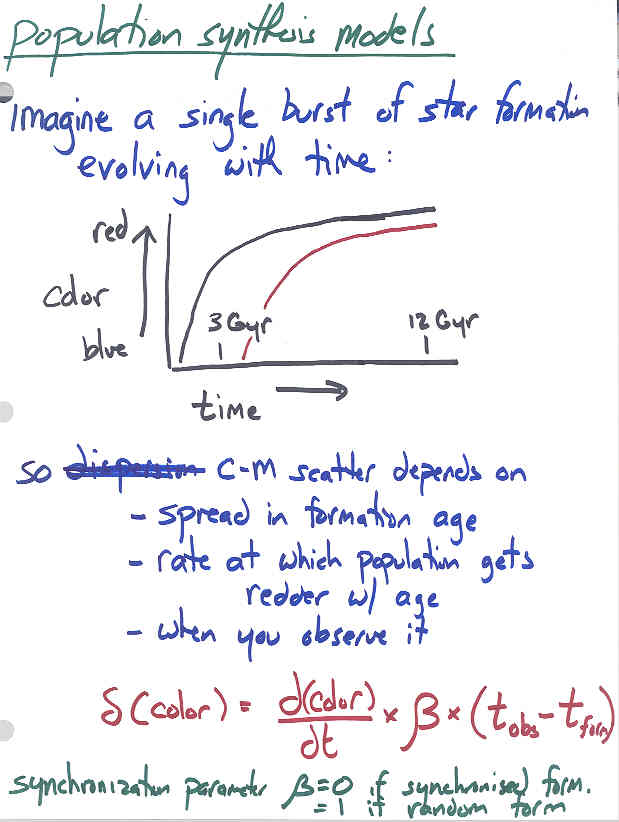 population synthesis models
Imagine a single burst of star formation
evolving with time:
red
color
3 Gyr
12 Gyr
blue
time
so dispersion C-M scatter depends on
- spread in formation age
- rate at which population gets
redder w/ age
- when you observe it
δ(color) = d(color)/dt × β × (t_obs - t_form)
synchronization parameter β=0 if synchronised form.
=1 if random form